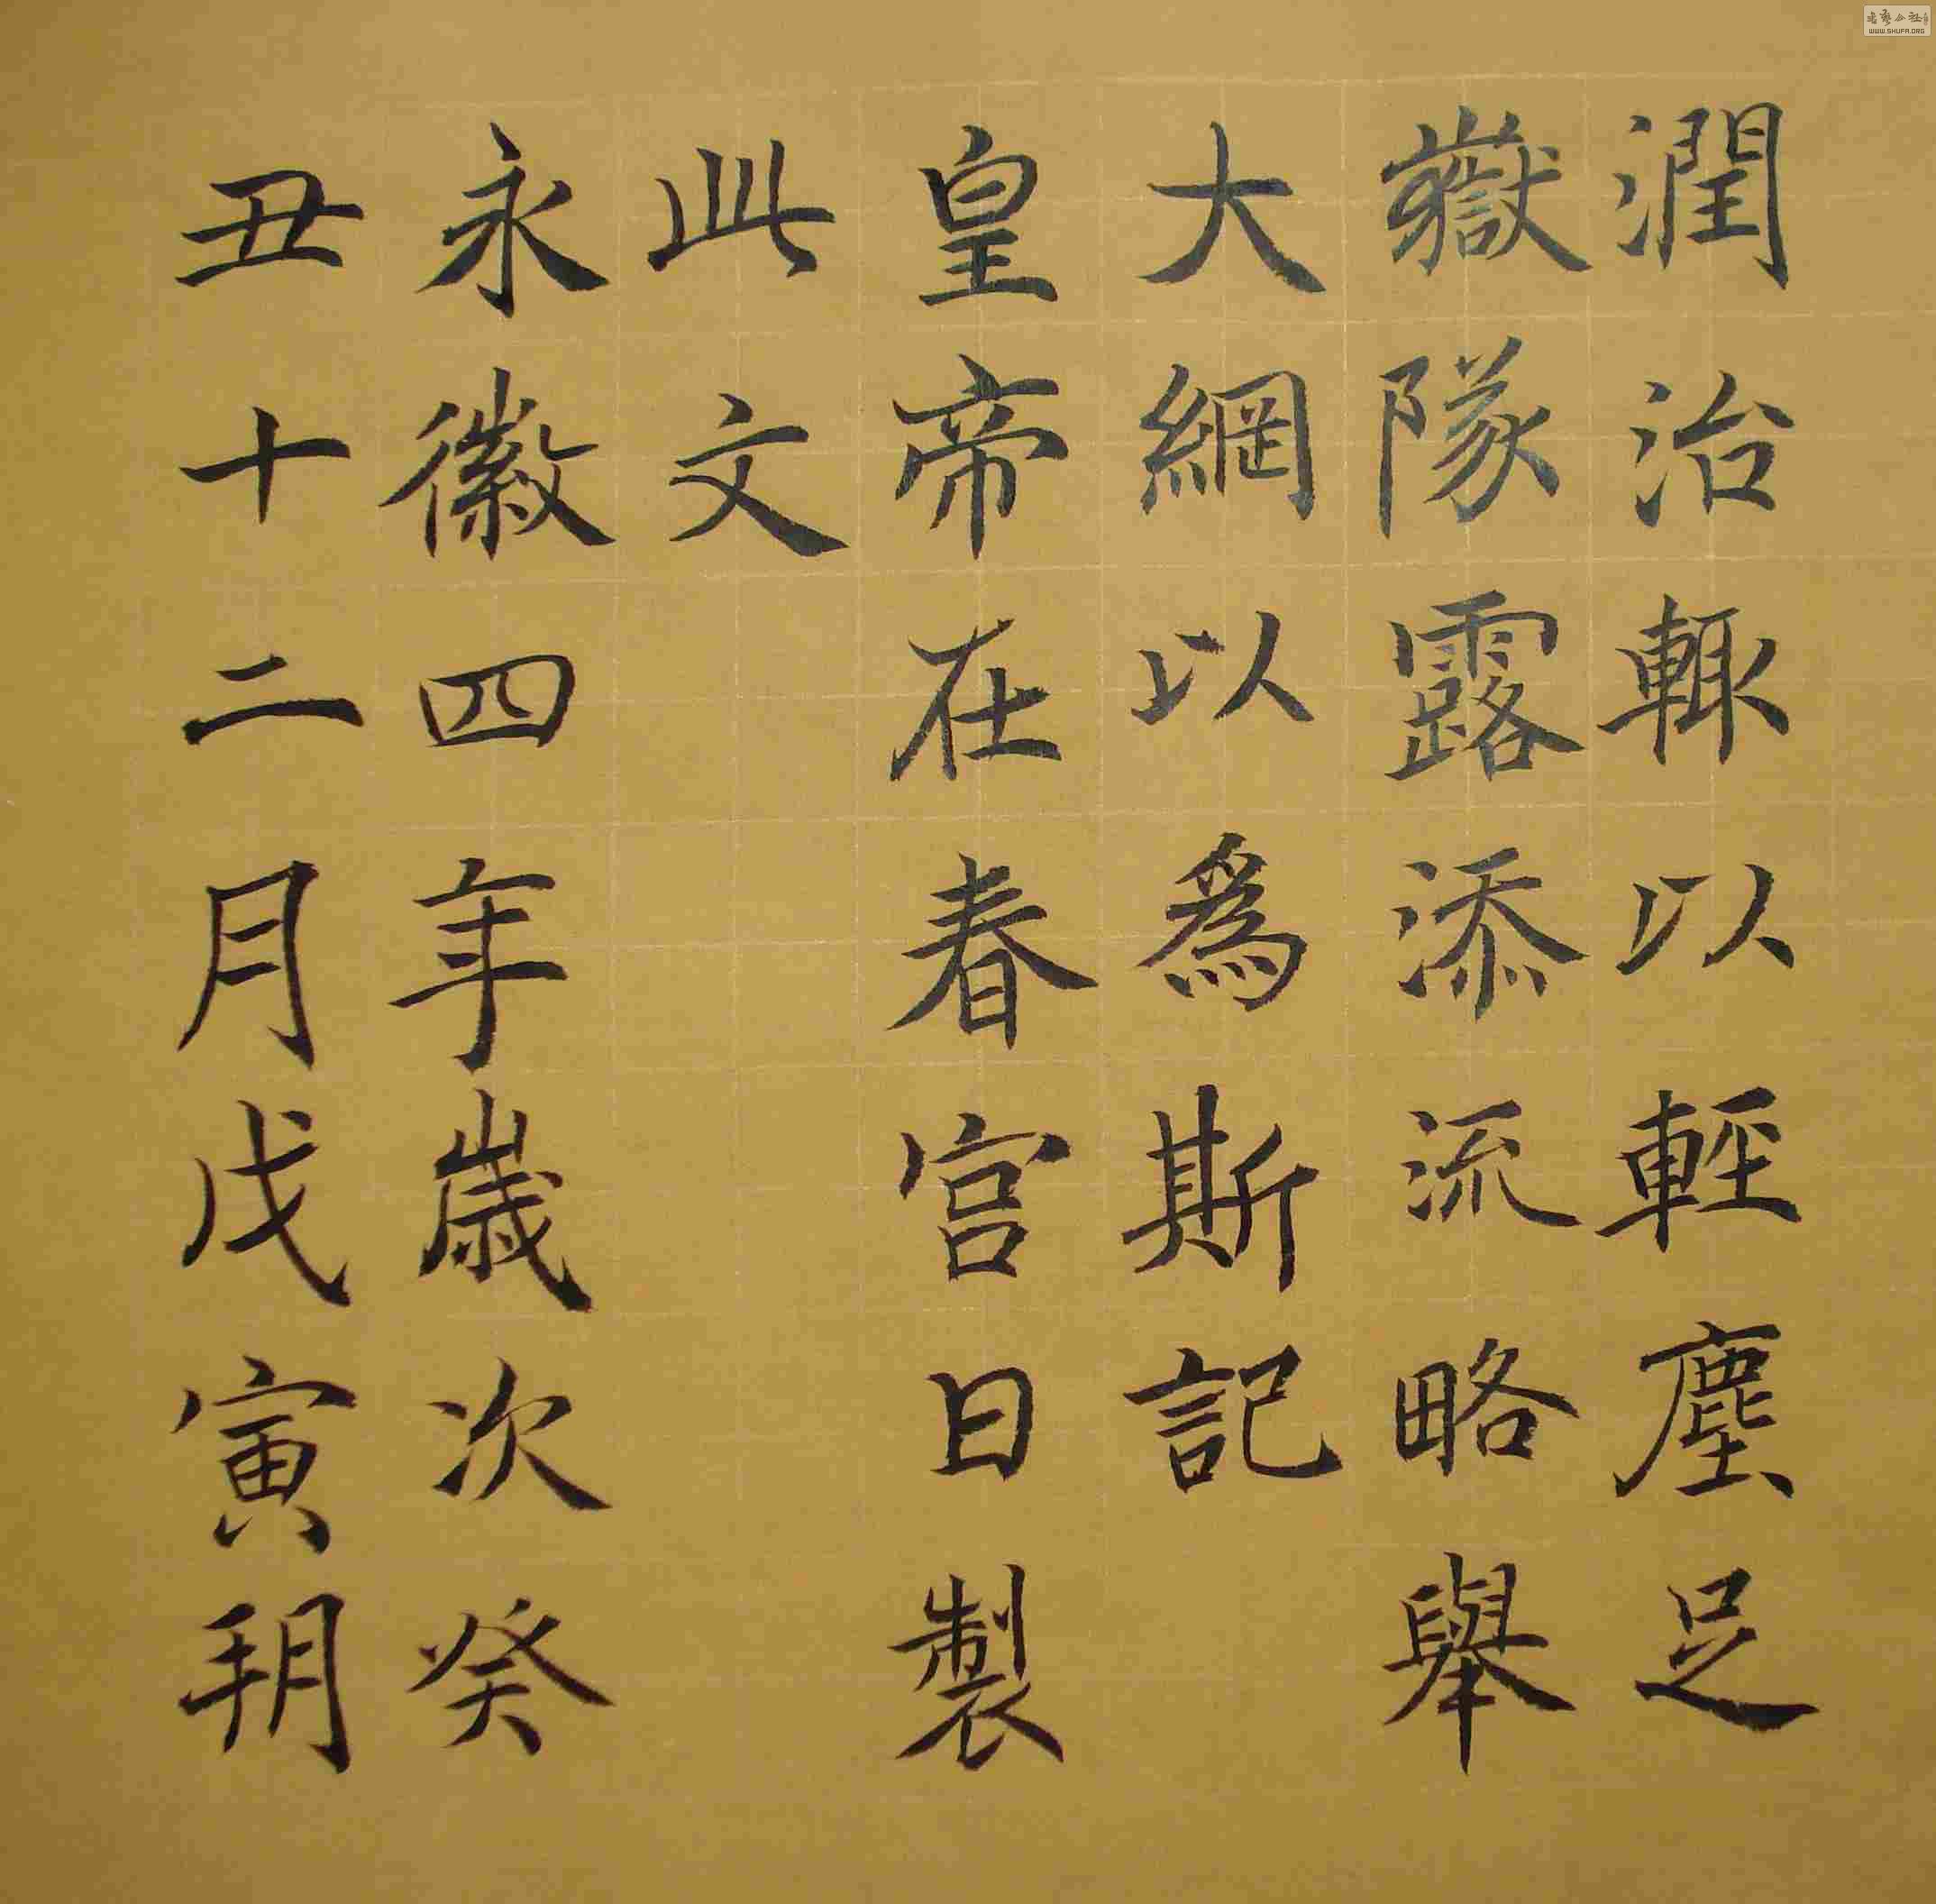 潤治輙以輕塵足
嶽隊露添流略舉
大綱以為斯記
皇帝在春宮日製
此文
永徽四年歲次癸
丑十二月戊寅朔
WWW.SHUFA.ORG